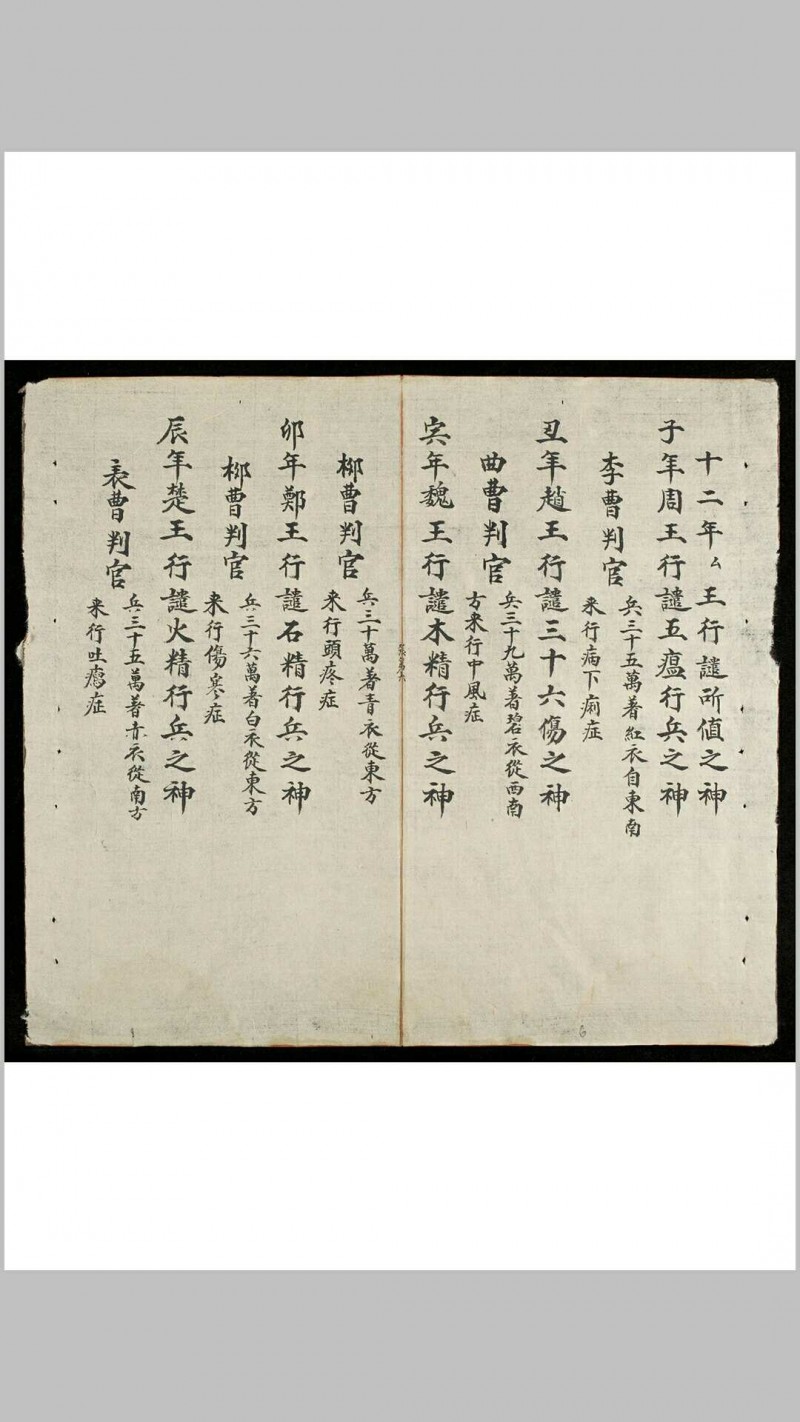 十二年厶王行譴所值之神
子年周王行譴五瘟行兵之神
李曹判官
兵三十五萬著紅衣自東南
来行病下痢症
丑年趙王行譴三十六傷之神
曲曹判官
兵三十九萬著碧衣從西南
方来行中風症
年魏王行譴木精行兵之神
柳曹判官
兵三十萬著青衣從東方
来行頭疼症
卯年鄭王行譴石精行兵之神
柳曹判官
兵三十六萬著白衣從東方
来行傷寒症
辰年楚王行譴火精行兵之神
表曹判官
兵三十五萬著赤衣從南方
来行吐症
6